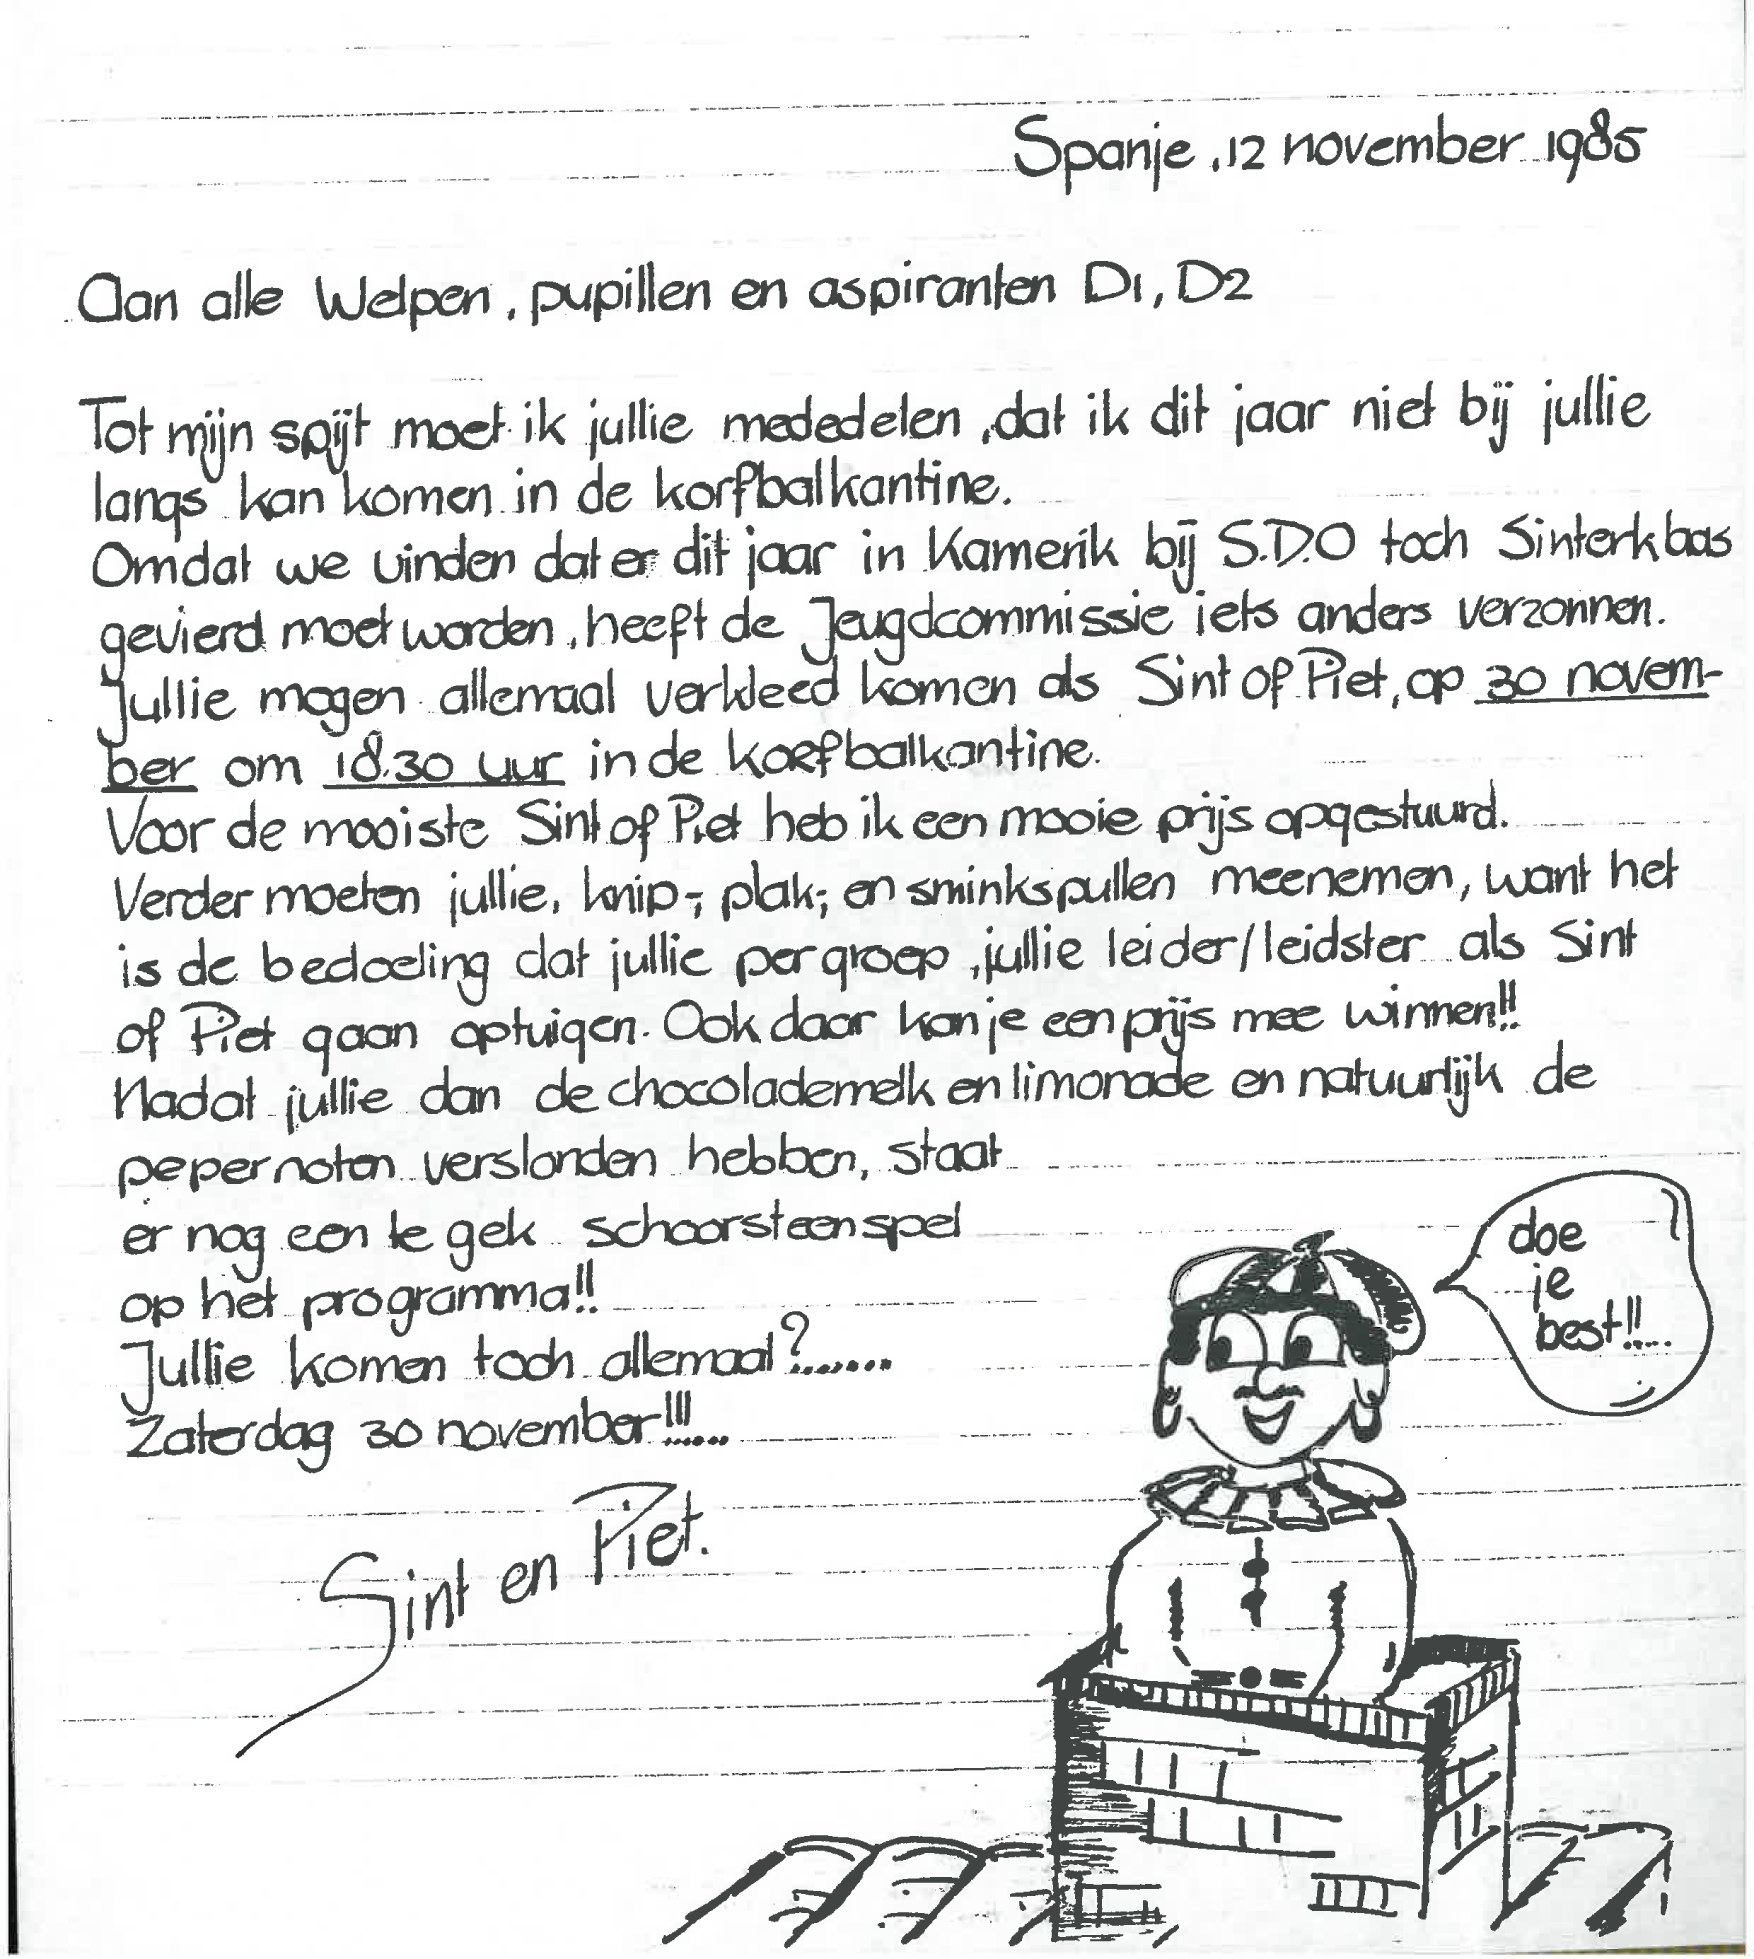 Spanje, 12 november 1985
Aan alle Welpen, pupillen en aspiranten D1, D2
Tot mijn spijt moet ik jullie mededelen, dat ik dit jaar niet bij jullie
langs kan komen in de korfbalkantine.
Omdat we vinden dat er dit jaar in Kamerik bij S.D.O toch Sinterklaas
gevierd moet worden, heeft de Jeugdcommissie iets anders verzonnen.
Jullie mogen allemaal verkleed komen als Sint of Piet, op 30 novem-
ber om 18.30 uur in de korfbalkantine.
Voor de mooiste Sint of Piet heb ik een mooie prijs opgestuurd.
Verder moeten jullie, knip-, plak-, en sminkspullen meenemen, want het
is de bedoeling dat jullie per groep, jullie leider/leidster als Sint
of Piet gaan optuigen. Ook daar kan je een prijs mee winnen!!
Nadat jullie dan de chocolademelk en limonade en natuurlijk de
pepernoten verslonden hebben, staat
er nog een te gek schoorsteenspel
op het programma!!
Jullie komen toch allemaal?.......
Zaterdag 30 november!!!......
Sint en Piet.
doe
je
best!!....